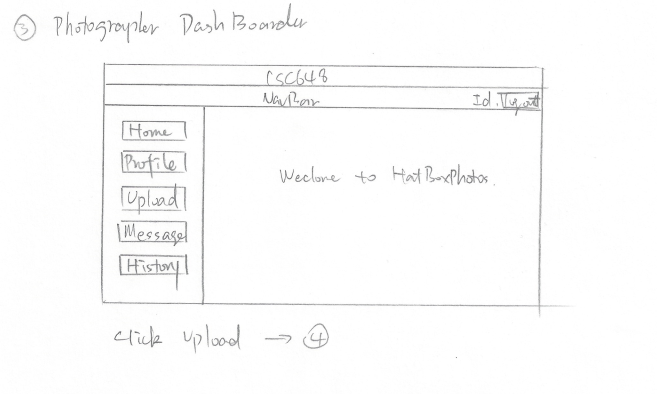 ③ Photographer DashBoarder
CSC648
NavBar Id. Logout
Home
Profile
Upload
Message
History
Weclome to HatBoxPhotos.
click upload → ④